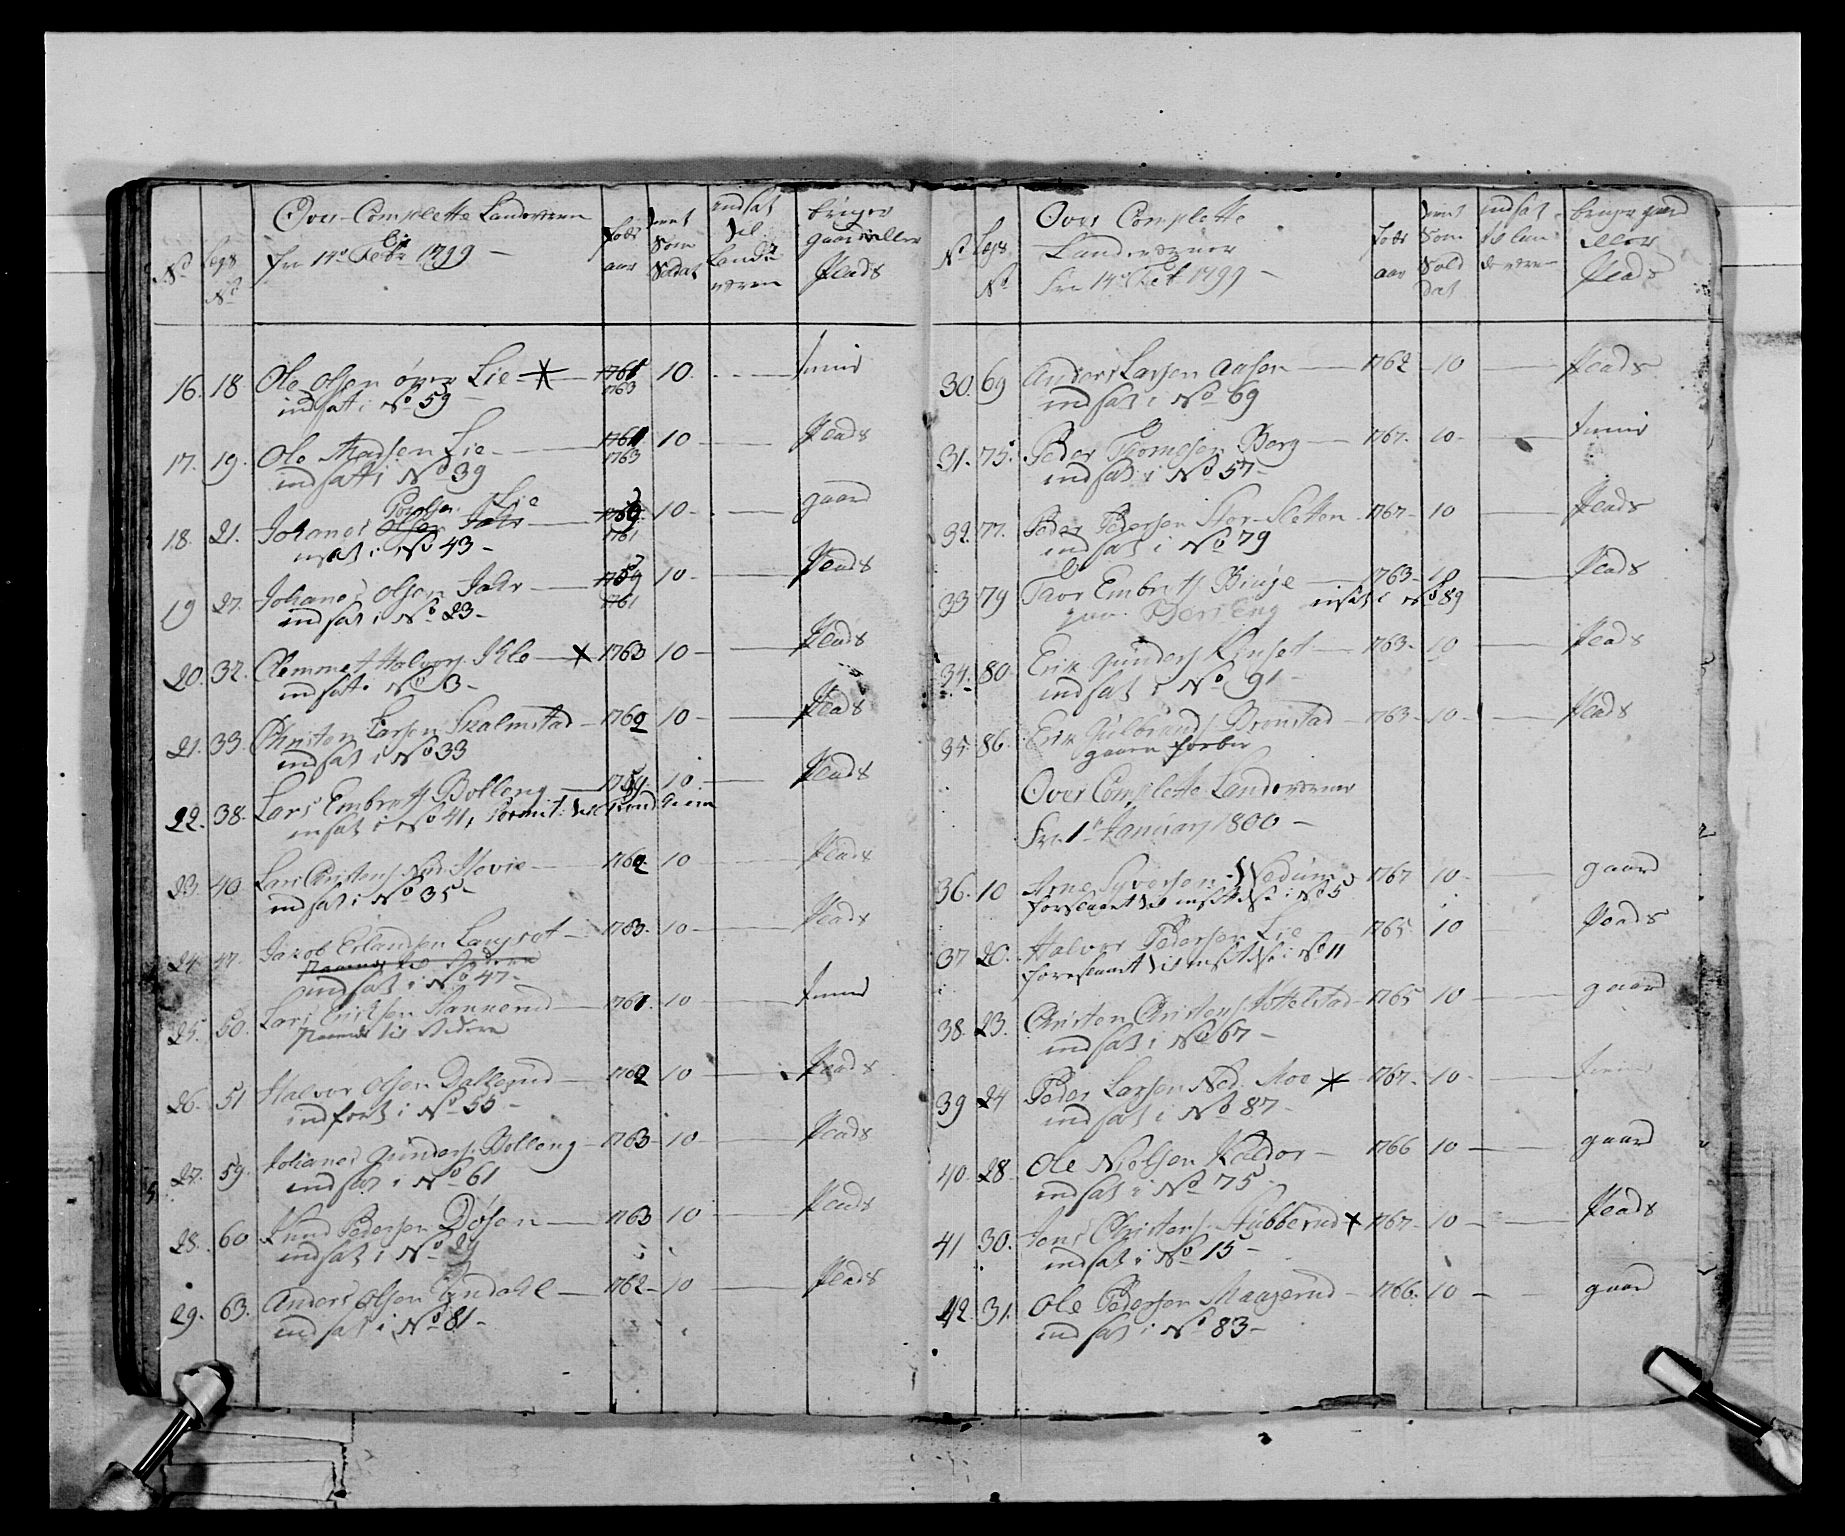 No
Legs No
Over-Complette Landeværn
fra 14de Febr 1799
Føds aar
tient Som Soldat
indsat til Landeværn
bruger gaard eller Plads
16. 18 Ole Olsen øvre Lie 1761 10. inderst
1763
indsat i No 59
17. 19. Ole Madsen Lie 1761 10 Plads
1763
indsat i No 39
Povelsen Lie
18. 21. Johanes Olsen Jahr 1759 10 gaard
1761
insat i No 43
19 27. Johanes Olsen Jahr 1759 10 Plads
1761
indsat i No 23
20. 32. Clemmet Halvors. Kle 1763 10 Plads
indsat i No 3
21. 33. Christen Larsen Skalmstad 1762 10 Plads
indsat i No 33
22. 38. Lars Embretss Bolleng 10 Plads
insat i No 41,
23. 40 Lars Christens. Ned. Hovie 1762 10 Plads
indsat i No 35
24. 47. Jakob Erlandsen 1763. 10 Plads
indsat i No 47
25. 50. Lars Ericksen 1761 10
26. 51 Halvor Olsen Dallerud 1762 10 Plads
indført i No 55
27. 59. Johanes Gunders. Bolleng 1763 10 Plads
indsat i No 61
28. 60 Knud Pedersen Døsen 1763 10 Plads
indsat i No 29
29. 63. Anders Olsen 1762 10 Plads
indsat i No 81
No
Legs No
Over Complette
Landeværner
fra 14de Feb 1799
Føds aar
tient Som Soldat
indsat til landeværn
bruger gaard eller Plads
30. 69 Anders Larsen Aasen 1762 10 Plads
indsat i No 69
31. 75. Peder Thomesen Berg 1767. 10
indsat i No 57
32. 77. Peder Pedersen Stor-Sletten 1767 10 Plads
indsat i No 79
33 79 Thor Embretss 1763 10 Plads
insat i No 89
34. 80. Erik Gunders. Kinset 1763 10 Plads
indsat i No 91
35. 86. Erik Gulbrands. Brenstad 1763 10 Plads
gaaen forbie
Over Complette Landeværner
fra 1te January 1800
36. 10 Arne Syversen Wedum 1767 10 gaard
foreslaaet til insættelse i No 5
37 20. Halvor Pedersen Lie 1765 10 Plads
foreslaaet til insættelse i No 11
38. 23. Christen Christens. 1765 10 gaard
indsat i No 67
39 24 Peder Larsen Ned. Moe 1767 10
indsat i No 87
40. 28 Ole Nielsen Kaldor 1766 10 gaard
indsat i No 75
41 30. Jens Christens. Stubberud 1767 10 Plads
indsat i No 15
42. 31. Ole Pedersen Maagerud 1766. 10 gaard
indsat i No 83